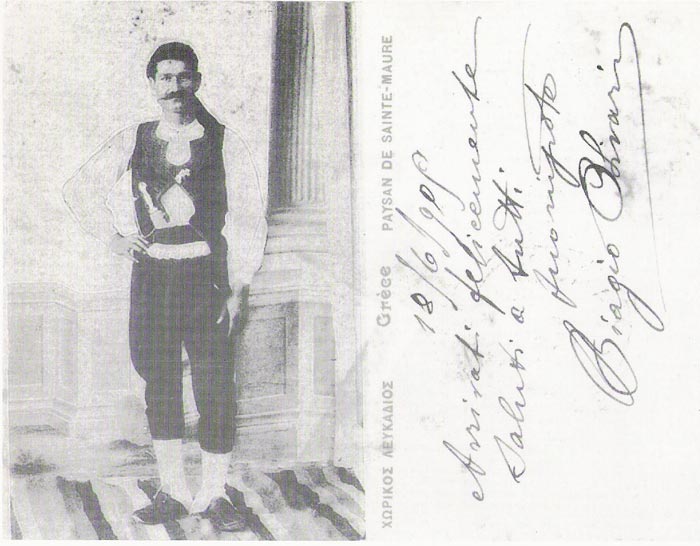 ΧΩΡΙΚΟΣ ΛΕΥΚΑΔΙΟΣ Grèce PAYSAN DE SAINTE-MAURE
18/6/905
Arrivati felicemente
Saluti a tutti
tuo nipote
Biagio